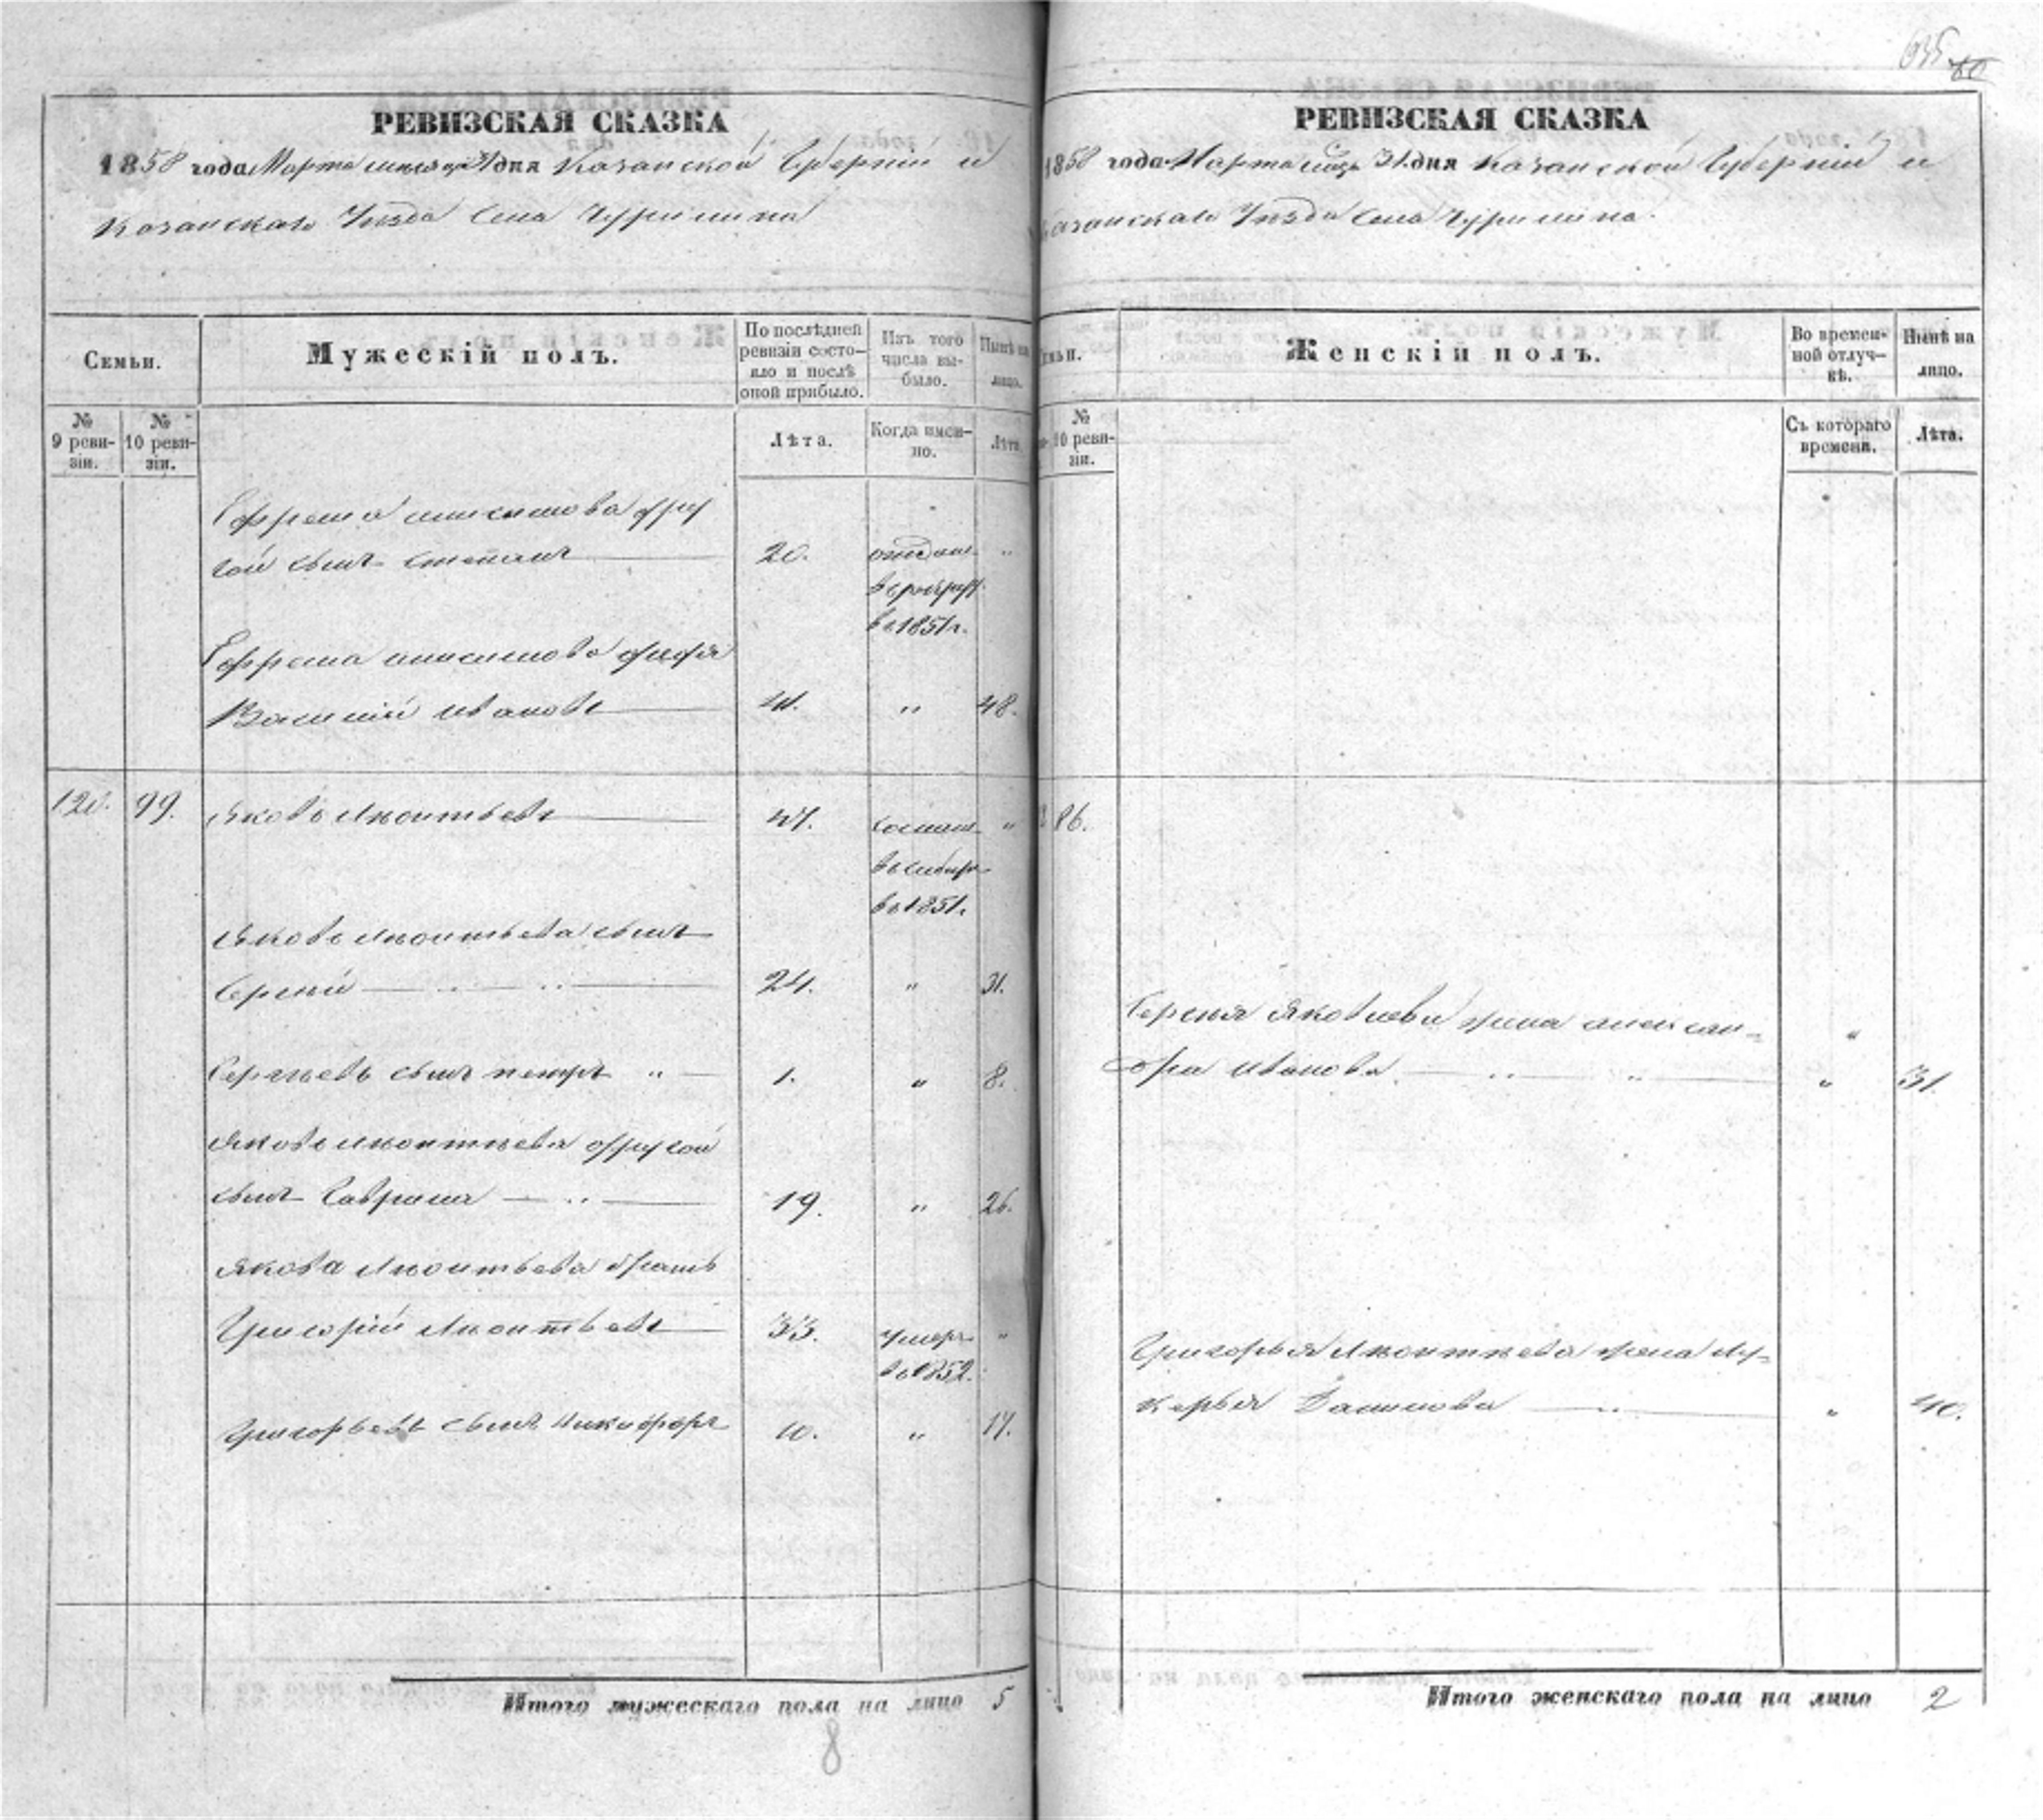 РЕВИЗСКАЯ СКАЗКА
1858 года Марта месяца 31 дня Казанской Губерніи и
Казанскаго Уезда Села Чурилина
Семьи.
Мужескій полъ.
По послѣдней ревизіи состо-
яло и послѣ оной прибыло.
Изъ того числа вы-
было.
Нынѣ на лицо.
№ 9 реви-
зіи.
№ 10 реви-
зіи.
Лѣта.
Когда имен-
но.
Лѣта.
Ефрема Анисимова дру
гой сынъ Степанъ 20. отдан „
в рекруты
въ 1851 г.
Ефрема Анисимова дядя
Василий Ивановъ 41. „ 48.
120. 99. Яковъ Леонтьевъ 47. сослан „
въ сибирь
въ 1851.
Яковъ Леонтьева сынъ
Сергий 24. „ 31.
Сергеевъ сынъ петръ „ 1. „ 8.
Яковъ Леонтьева другой
сынъ Гаврила 19. „ 26.
Якова Леонтьева братъ
Григорій Леонтьевъ 33. умеръ „
въ 1852.
Григорьевъ сынъ Никифоръ 10. „ 17.
Итого мужескаго пола на лицо 5
8
РЕВИЗСКАЯ СКАЗКА
1858 года Марта 31 дня Казанской Губерніи и
Казанскаго Уезда Села Чурилина.
Женскій полъ.
Во времен-
ной отлуч-
кѣ.
Нынѣ на лицо.
№ 10 реви-
зіи.
Съ котораго времени.
Лѣта.
86.
Сергия Яковлева жена алексан- „
дра Иванова „ 31.
Григорья Леонтьева жена Лу-
керья Данилова „ 40.
Итого женскаго пола на лицо 2